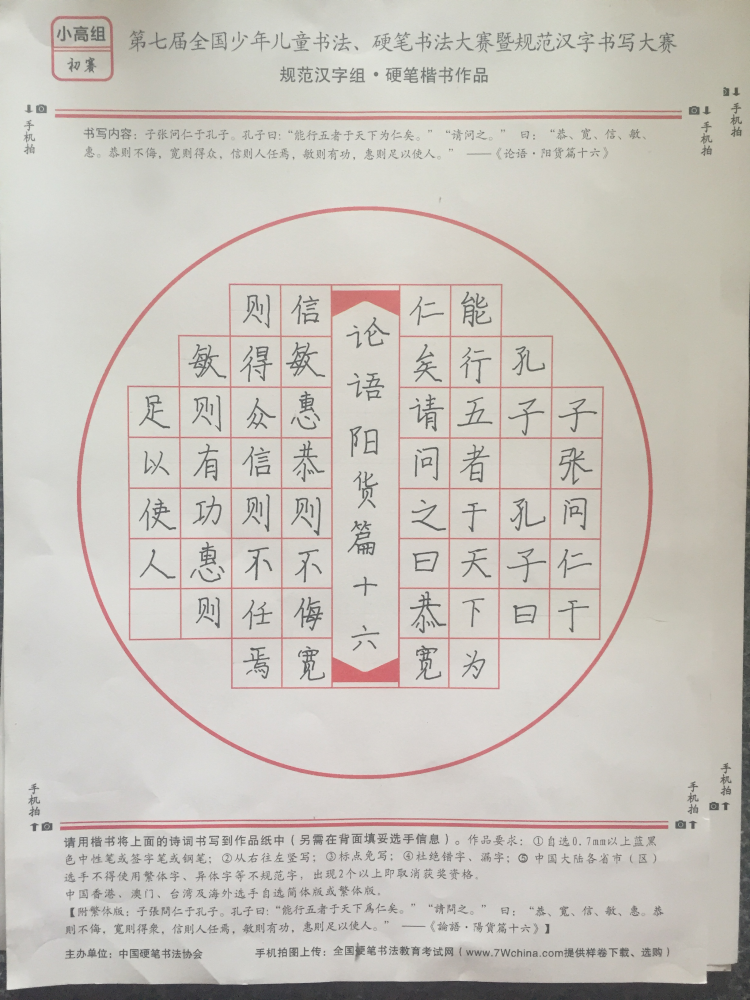 小高组
初赛
第七届全国少年儿童书法、硬笔书法大赛暨规范汉字书写大赛
规范汉字组·硬笔楷书作品
手机拍
手机拍
手机拍
书写内容：子张问仁于孔子。孔子曰：“能行五者于天下为仁矣。”“请问之。” 曰：“恭、宽、信、敏、
惠。恭则不侮，宽则得众，信则人任焉，敏则有功，惠则足以使人。” ——《论语·阳货篇十六》
子张问仁于
孔子 孔子曰
能行五者于天下为
仁矣请问之曰恭宽
论语阳货篇十六
信敏惠恭则不侮宽
则得众信则不任焉
敏则有功惠则
足以使人
手机拍
手机拍
手机拍
请用楷书将上面的诗词书写到作品纸中（另需在背面填妥选手信息）。作品要求：①自选0.7mm以上蓝黑
色中性笔或签字笔或钢笔；②从右往左竖写；③标点免写；④杜绝错字、漏字；⑤中国大陆各省市（区）
选手不得使用繁体字、异体字等不规范字，出现2个以上即取消获奖资格。
中国香港、澳门、台湾及海外选手自选简体版或繁体版。
【附繁体版：子張問仁于孔子。孔子曰：“能行五者于天下爲仁矣。”“請問之。” 曰：“恭、寬、信、敏、惠。恭
則不侮，寬則得衆，信則人任焉，敏則有功，惠則足以使人。” ——《論語·陽貨篇十六》】
主办单位：中国硬笔书法协会 手机拍图上传：全国硬笔书法教育考试网（www.7Wchina.com提供样卷下载、选购）